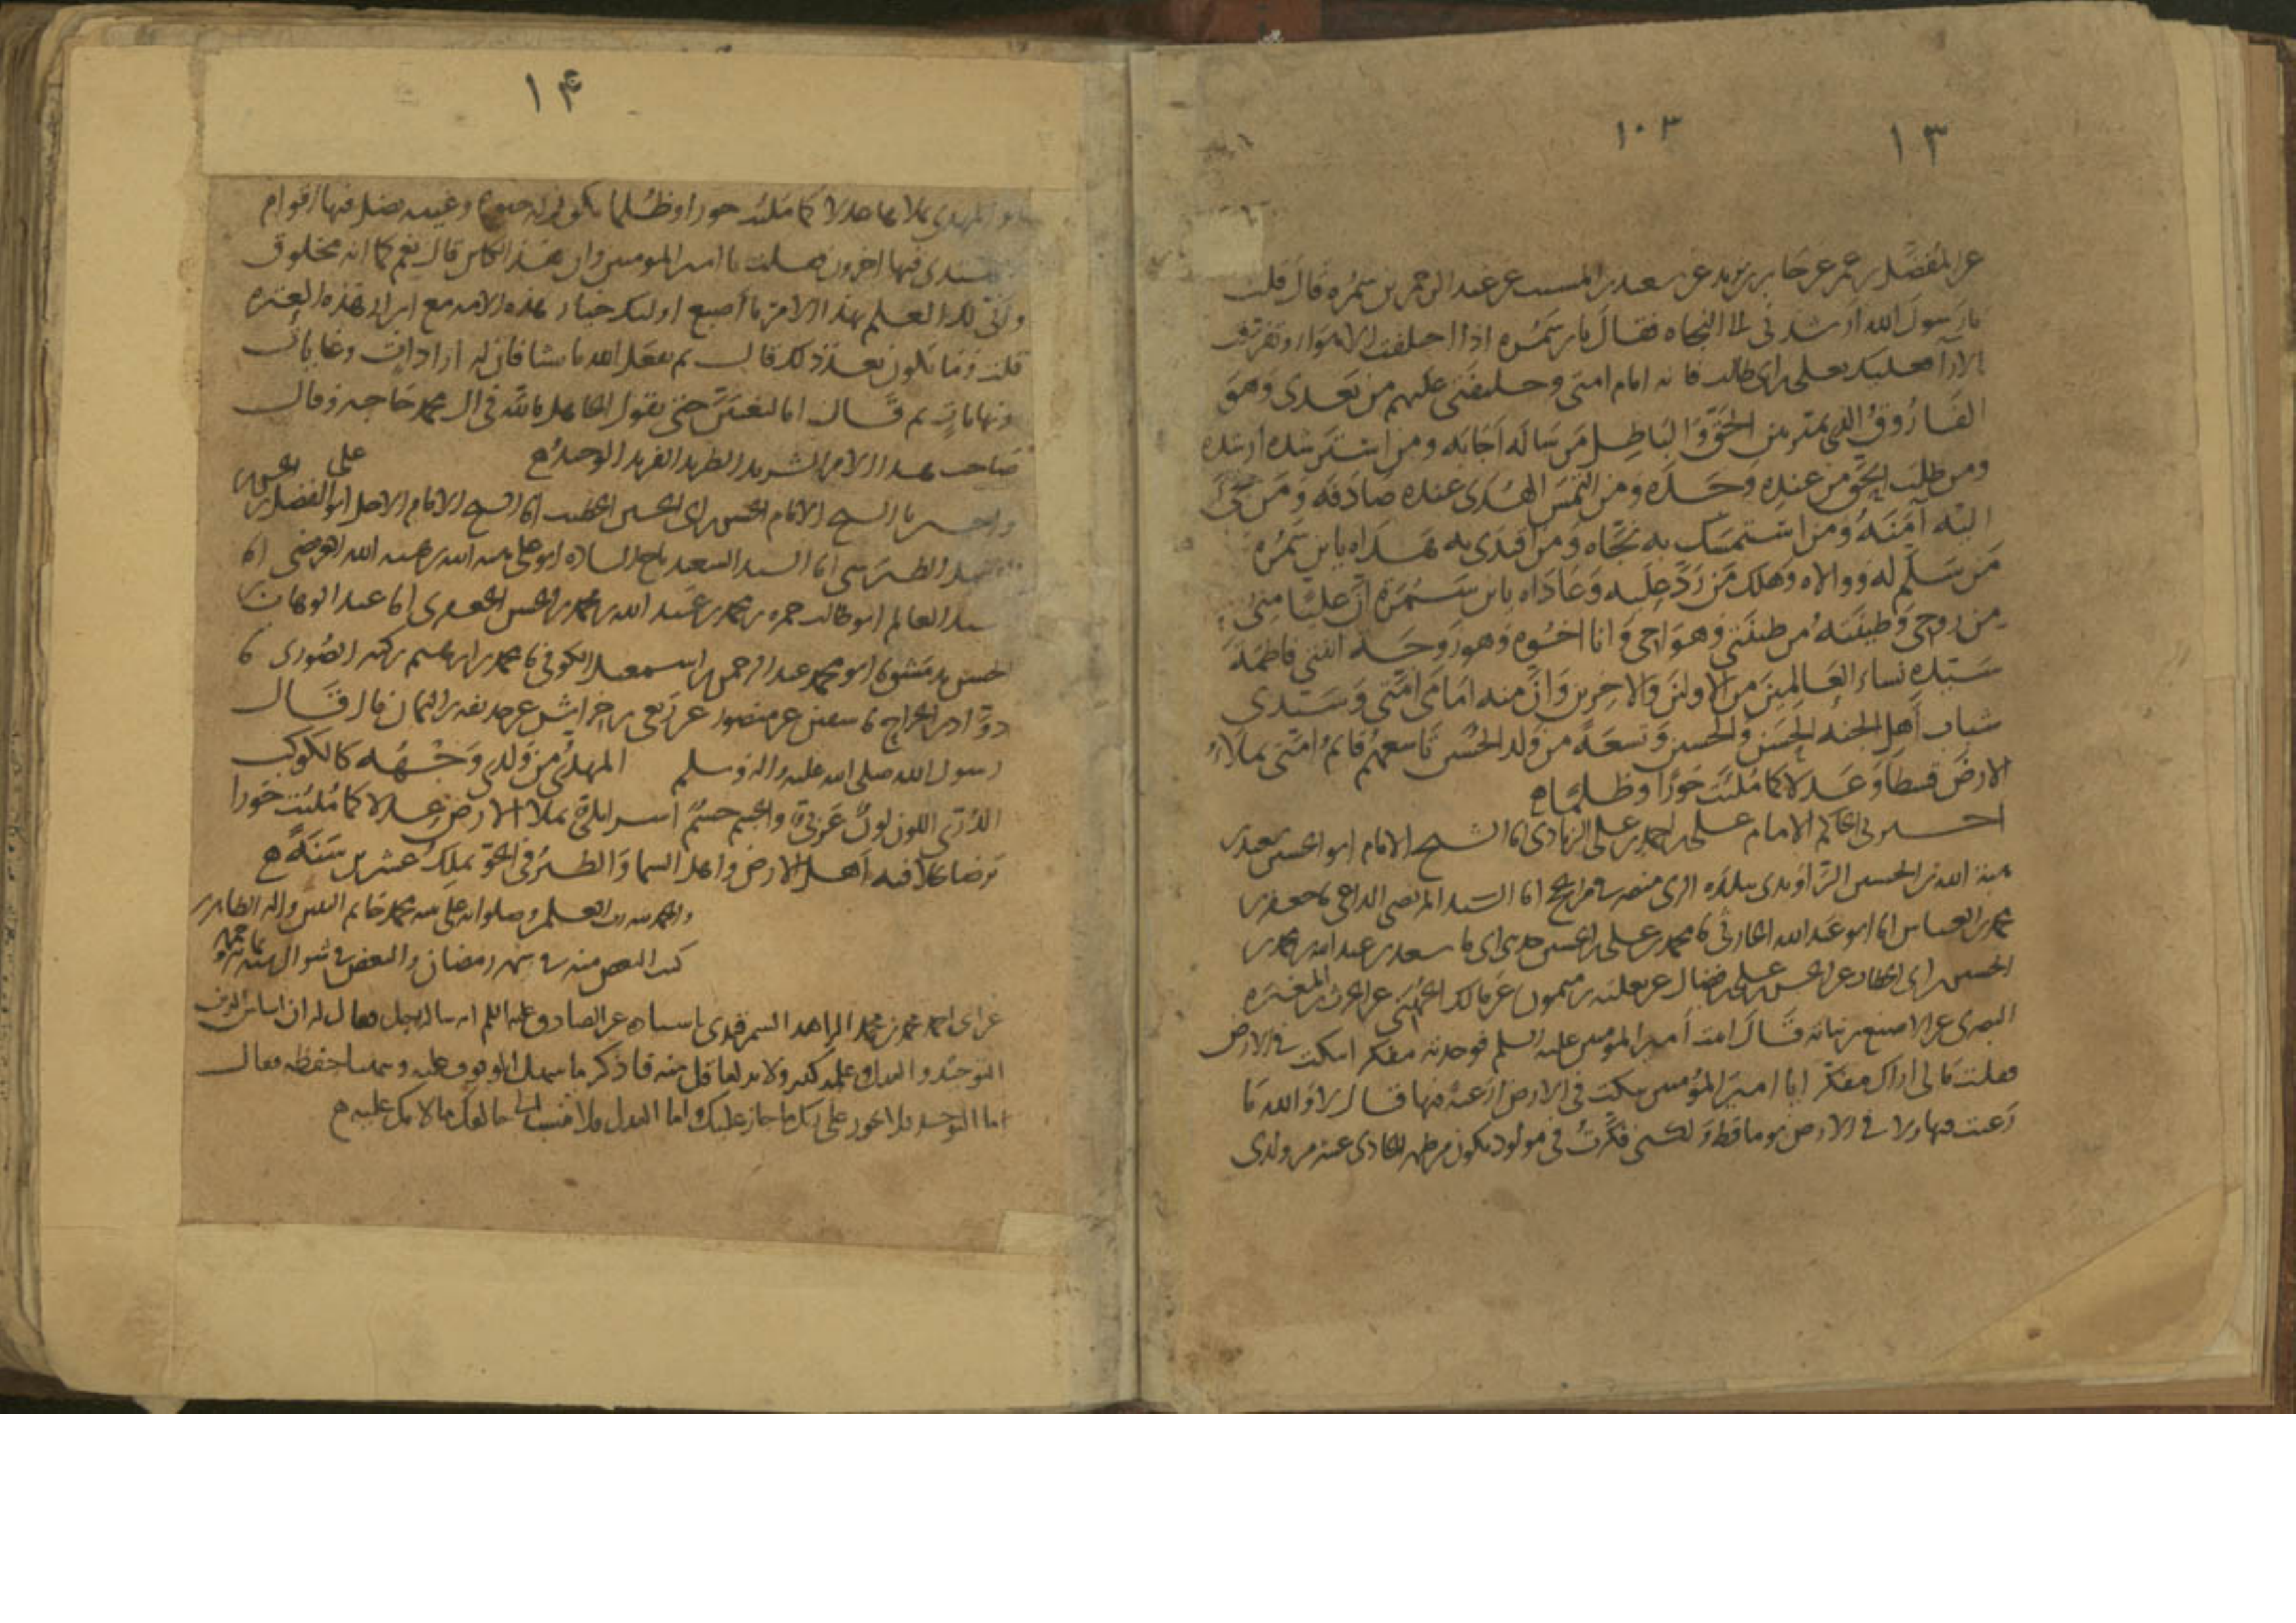 ١٣
١٠٣
عن المفضل بن عمر عن جابر بن يزيد عن سعيد بن المسيب عن عبد الرحمن بن سمره قال قلت
يا رسول الله ارشدني الى النجاه فقال يا بن سمره اذا اختلفت الاهوا وتفرقت
الارآ فعليك بعلي بن ابي طالب فانه امام امتي وخليفتي عليهم من بعدي وهو
الفاروق الذي يميز بين الحق والباطل من ساله اجابه ومن استرشده ارشده
ومن طلب الحق من عنده وجده ومن التمس الهدى عنده صادفه ومن لجأ
اليه آمنه ومن استمسك به نجاه ومن اقتدى به هداه يا بن سمره
من سلم له ووالاه وهلك من رد عليه وعاداه يا بن سمرة ان عليا مني
من روحي وطينته من طينتي وهو اخي وانا اخوه وهو زوج ابنتي فاطمة
سيده نساء العالمين من الاولين والاخرين وان منه امامي امتي وسيدي
شباب أهل الجنه الحسن والحسين وتسعة من ولد الحسين تاسعهم قائم امتي يملاء
الارض قسطا وعدلا كما ملئت جورا وظلما ه
اخبرني الحاكم الامام علي بن احمد بن علي الزيادي انا الشيخ الامام ابو الحسين سعيد بن
هبة الله بن الحسين الراوندي ببلده الري منصرفه من الحج انا السيد المرتضى الداعي نا جعفر بن
محمد بن العباس انا ابو عبد الله نا محمد بن علي بن الحسين حدثني ابي نا سعد بن عبد الله بن محمد بن
الحسين بن ابي الخطاب عن الحسن بن علي بن فضال عن ثعلبة بن ميمون عن مالك الجهني عن الحرث بن المغيره
البصري عن الاصبغ بن نباته قال اتيت أمير المؤمنين عليه السلم فوجدته مفكرا ينكت في الارض
فقلت ما لي اراك مفكرا يا امير المؤمنين تنكت في الارض ارغبة فيها قال لا والله ما
رغبت فيها ولا في الارض يوما قط ولكني فكرت في مولود يكون من ظهر الحادي عشر من ولدي
١۴
هو المهدي يملاها عدلا كما ملئت جورا وظلما يكون له حيره وغيبه يضل فيها اقوام
ويهتدي فيها اخرون فقلت يا امير المومنين وان هذا لكائن قال نعم كما انه مخلوق
وانى لك العلم بهذا الامر يا أصبغ اوليك خيار هذه الامه مع ابرار هذه العتره
قلت وما يكون بعد ذلك قال ثم يفعل الله ما يشا فان له ارادات وغايات
ونهايات ثم قال اما ليغيبن حتى يقول الجاهل ما لله في ال محمد حاجه وقال
صاحب هذا الامر الشريد الطريد الفريد الوحيد ه
واخبرنا الشيخ الامام الحسن بن ابي الحسين الخطيب انا الشيخ الامام الاجل ابو الفضل بن
الطبرسي انا السيد السعيد تاج الساده ابو علي عبد الله بن هبه الله انا
سيد العالم ابو طالب حمزه بن محمد بن عبد الله بن محمد بن الحسن الجعفري انا عبد الوهاب بن
الحسن بدمشق نا ابو محمد عبد الرحمن بن اسمعيل الكوفي نا محمد بن ابراهيم بن كثير الصوري نا
رواد بن الجراح نا سفين عن منصور عن ربعي بن خراش عن حذيفه بن اليمان قال قال
رسول الله صلى الله عليه واله وسلم المهدي من ولدي وجهه كالكوكب
الدري اللون لون عربي والجسم جسم اسرايلي يملا الارض عدلا كما ملئت جورا
يرضا بخلافته أهل الارض واهل السما والطير في الجو يملك عشرين سنة ه
والحمد لله رب العلمين وصلواته على نبيه محمد خاتم النبيين واله الطاهرين
كتب البعض منه في شهر رمضان والبعض في شوال سنه
عن ابي احمد محمد بن محمد الزاهد السمرقندي باسناده عن الصادق عليه السلم انه ساله رجل فقال له ان اساس الدين
التوحيد والعدل وعلمه كثير ولا بد لعاقل منه فاذكر ما يسهل الوقوف عليه ويتهيا حفظه فقال
اما التوحيد فان لا تجوز على ربك ما جاز عليك واما العدل فلا تنسب الى خالقك ما لامك عليه ه